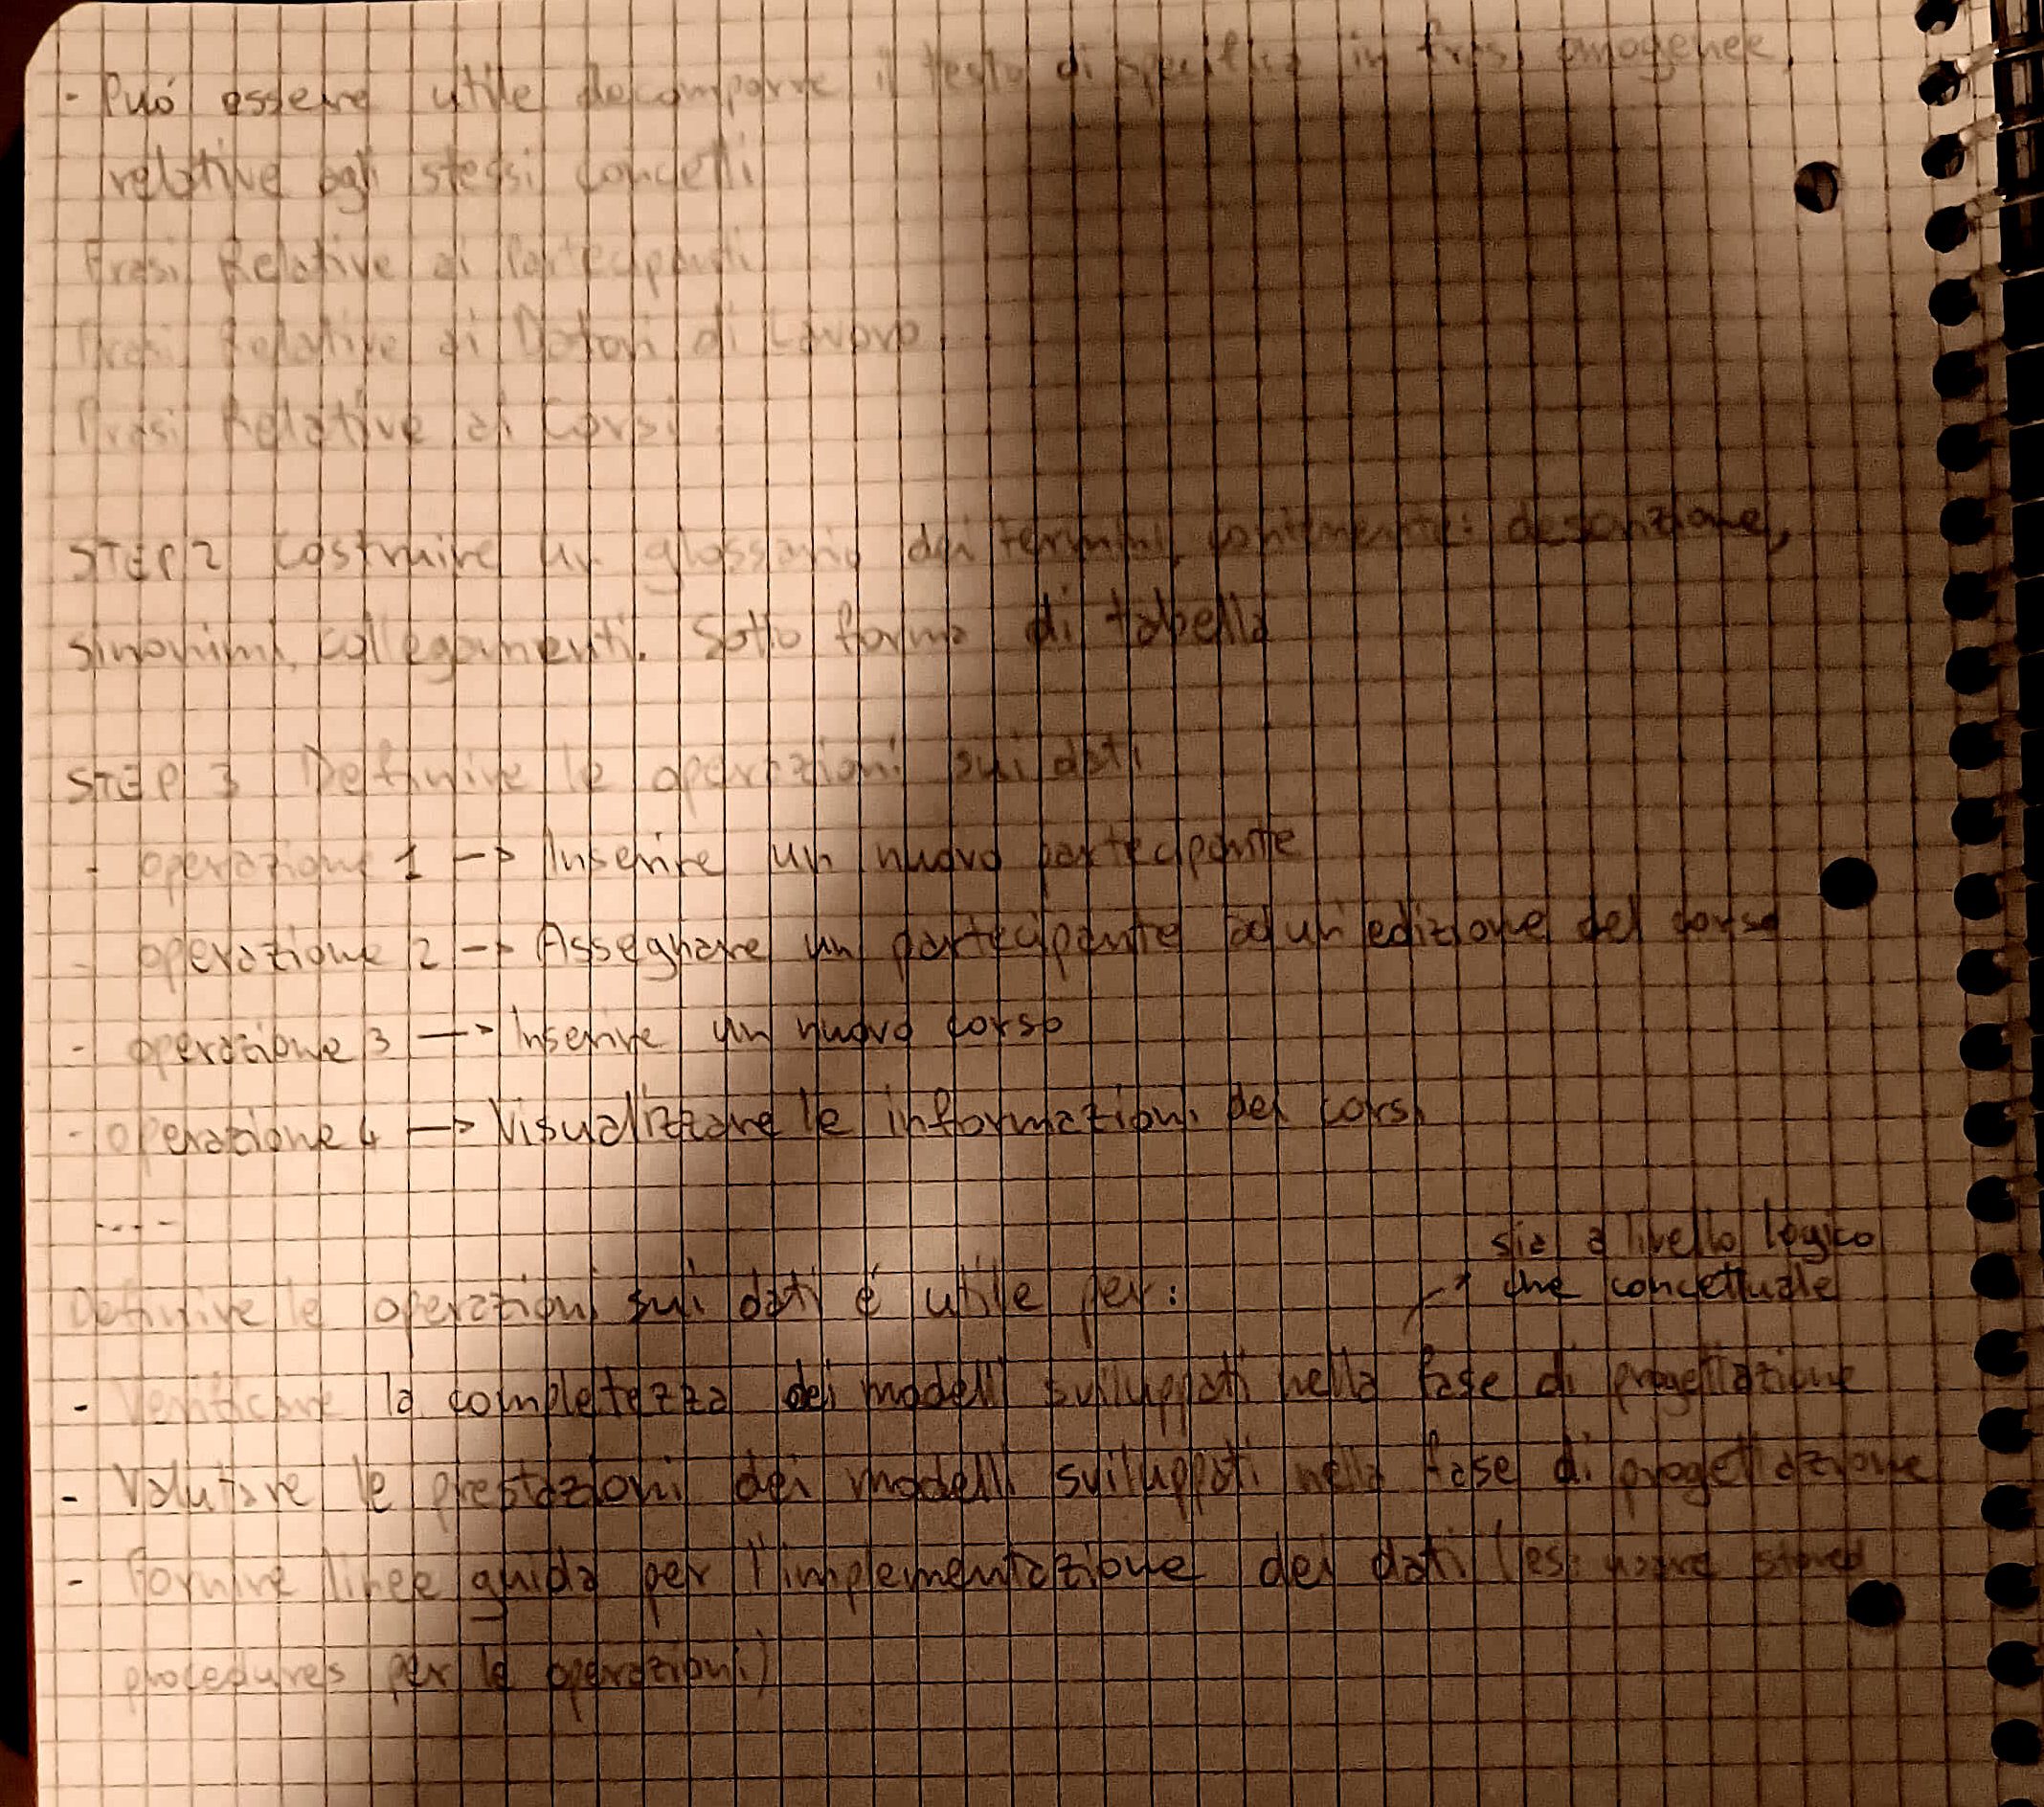 - Può essere utile decomporre il testo di specifica in frasi omogenee,
relative agli stessi concetti
Frasi Relative ai Partecipanti
Frasi Relative ai Datori di Lavoro
Frasi Relative ai Corsi
STEP 2 Costruire un glossario dei termini, contenente: descrizione,
sinonimi, collegamenti. Sotto forma di tabella
STEP 3 Definire le operazioni sui dati
- operazione 1 --> Inserire un nuovo partecipante
- operazione 2 --> Assegnare un partecipante ad un edizione del corso
- operazione 3 --> Inserire un nuovo corso
- operazione 4 --> Visualizzare le informazioni dei corsi
....
sia a livello logico
Definire le operazioni sui dati é utile per: che concettuale
- Verificare la completezza dei modelli sviluppati nella fase di progettazione
- Valutare le prestazioni dei modelli sviluppati nella fase di progettazione
- Fornire linee guida per l'implementazione dei dati (es: usare stored
procedures per le operazioni)